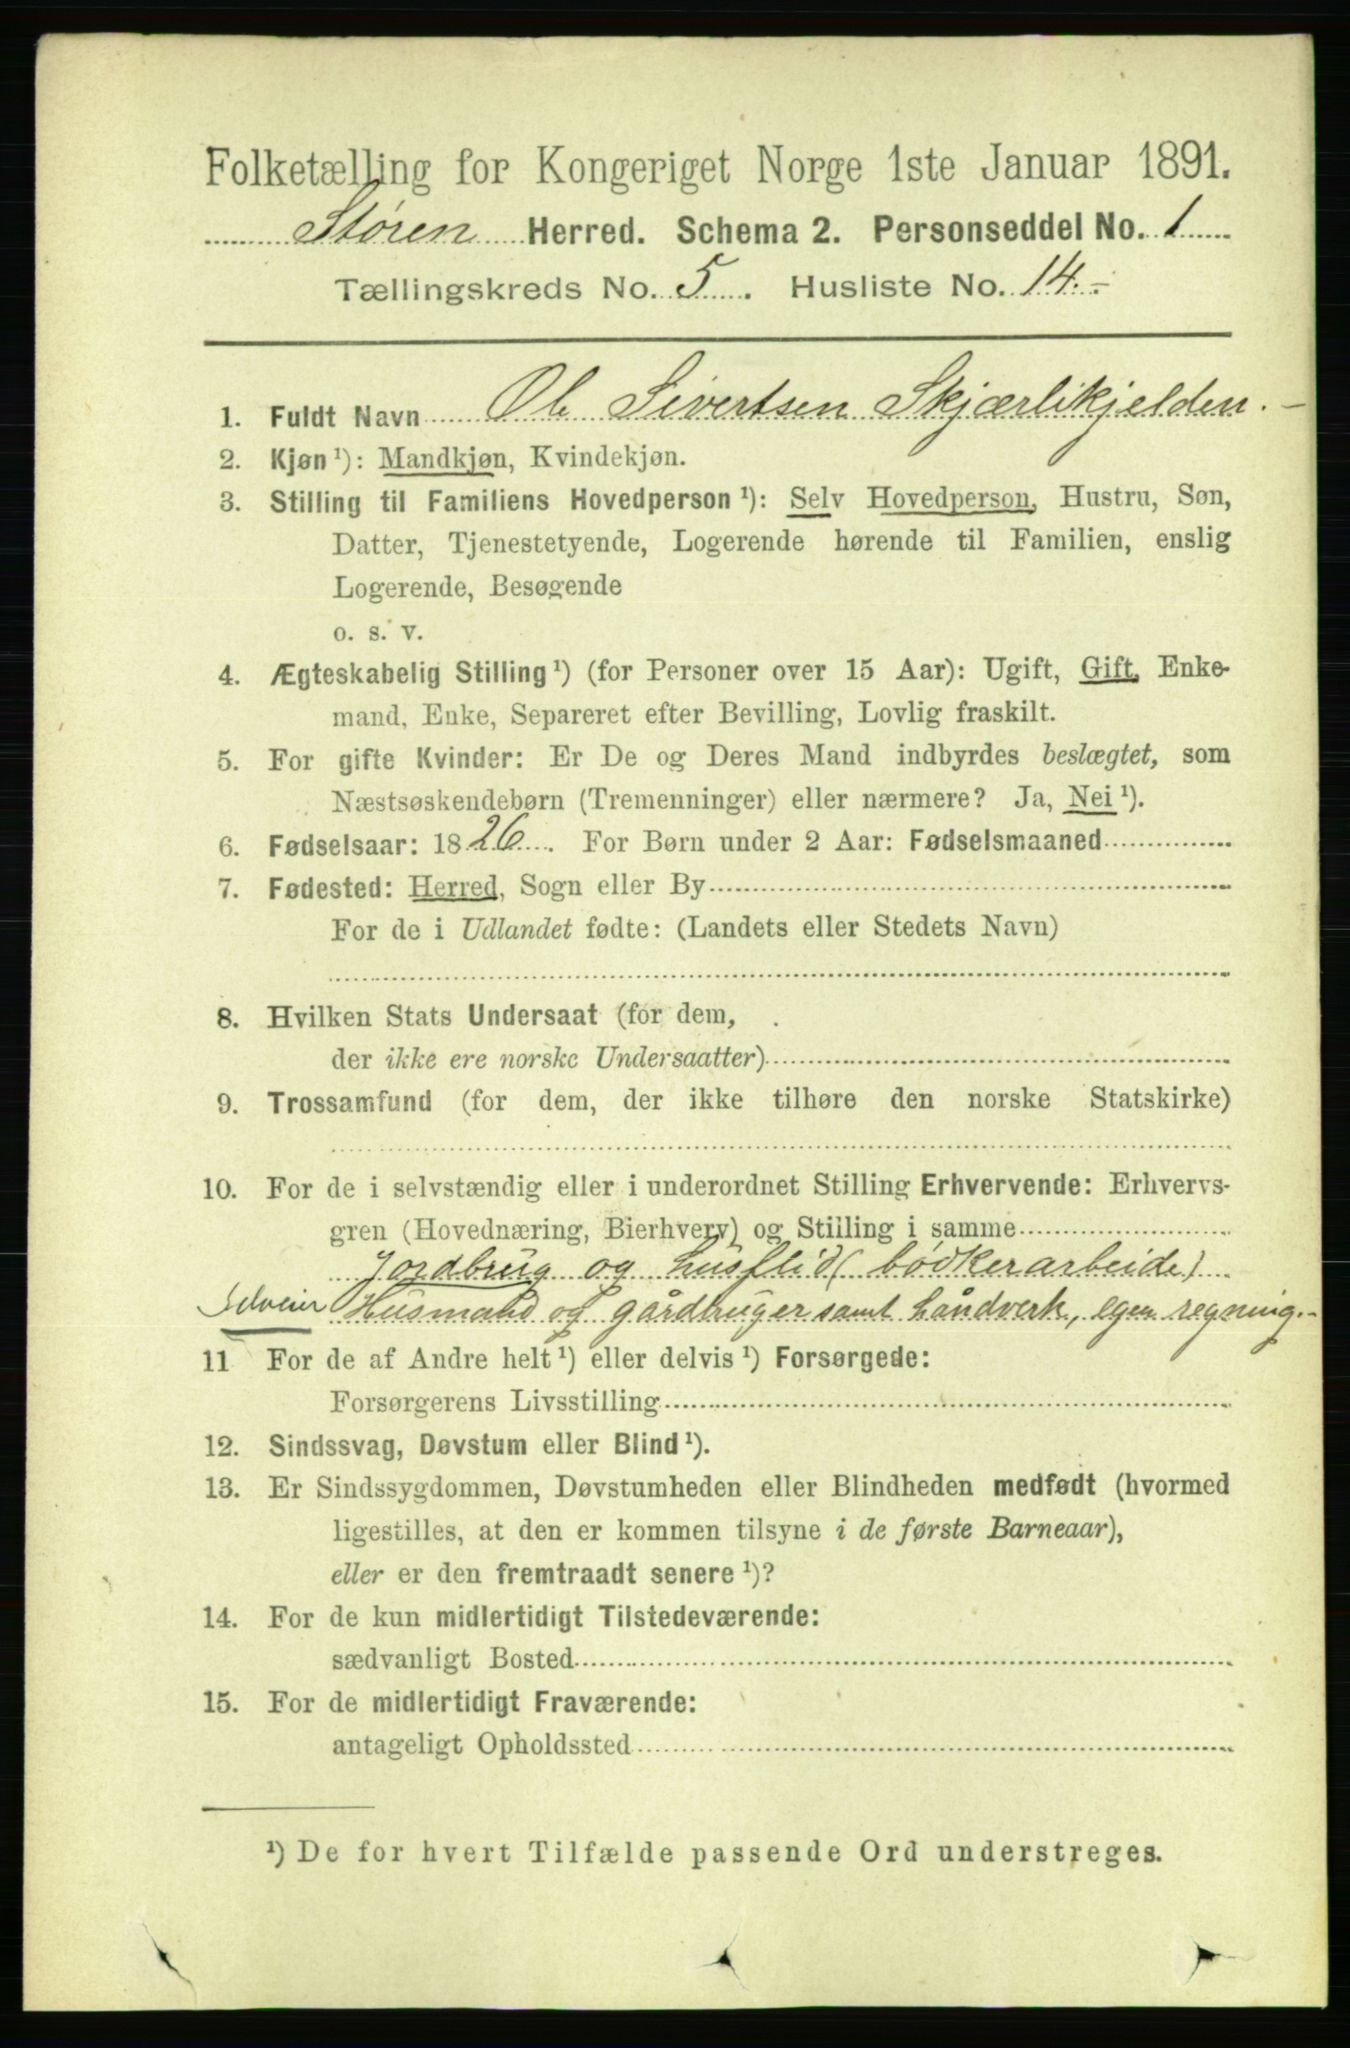 Folketælling for Kongeriget Norge 1ste Januar 1891.
Støren Herred. Schema 2. Personseddel No. 1
Tællingskreds No. 5. Husliste No. 14.-
1. Fuldt Navn Ole Sivertsen Skjærlikjelden.-
2. Kjøn ¹): Mandkjøn, Kvindekjøn.
3. Stilling til Familiens Hovedperson ¹): Selv Hovedperson, Hustru, Søn,
Datter, Tjenestetyende, Logerende hørende til Familien, enslig
Logerende, Besøgende
o. s. v.
4. Ægteskabelig Stilling ¹) (for Personer over 15 Aar): Ugift, Gift, Enke-
mand, Enke, Separeret efter Bevilling, Lovlig fraskilt.
5. For gifte Kvinder: Er De og Deres Mand indbyrdes beslægtet, som
Næstsøskendebørn (Tremenninger) eller nærmere? Ja, Nei ¹).
6. Fødselsaar: 1826. For Børn under 2 Aar: Fødselsmaaned
7. Fødested: Herred, Sogn eller By
For de i Udlandet fødte: (Landets eller Stedets Navn)
8. Hvilken Stats Undersaat (for dem,
der ikke ere norske Undersaatter)
9. Trossamfund (for dem, der ikke tilhøre den norske Statskirke)
10. For de i selvstændig eller i underordnet Stilling Erhvervende: Erhvervs-
gren (Hovednæring, Bierhverv) og Stilling i samme
Jordbrug og husflid (bødkerarbeide)
Selveier Husmand og gårdbruger samt håndverk, egen regning.-
11 For de af Andre helt ¹) eller delvis ¹) Forsørgede:
Forsørgerens Livsstilling
12. Sindssvag, Døvstum eller Blind ¹).
13. Er Sindssygdommen, Døvstumheden eller Blindheden medfødt (hvormed
ligestilles, at den er kommen tilsyne i de første Barneaar),
eller er den fremtraadt senere ¹)?
14. For de kun midlertidigt Tilstedeværende:
sædvanligt Bosted
15. For de midlertidigt Fraværende:
antageligt Opholdssted
¹) De for hvert Tilfælde passende Ord understreges.